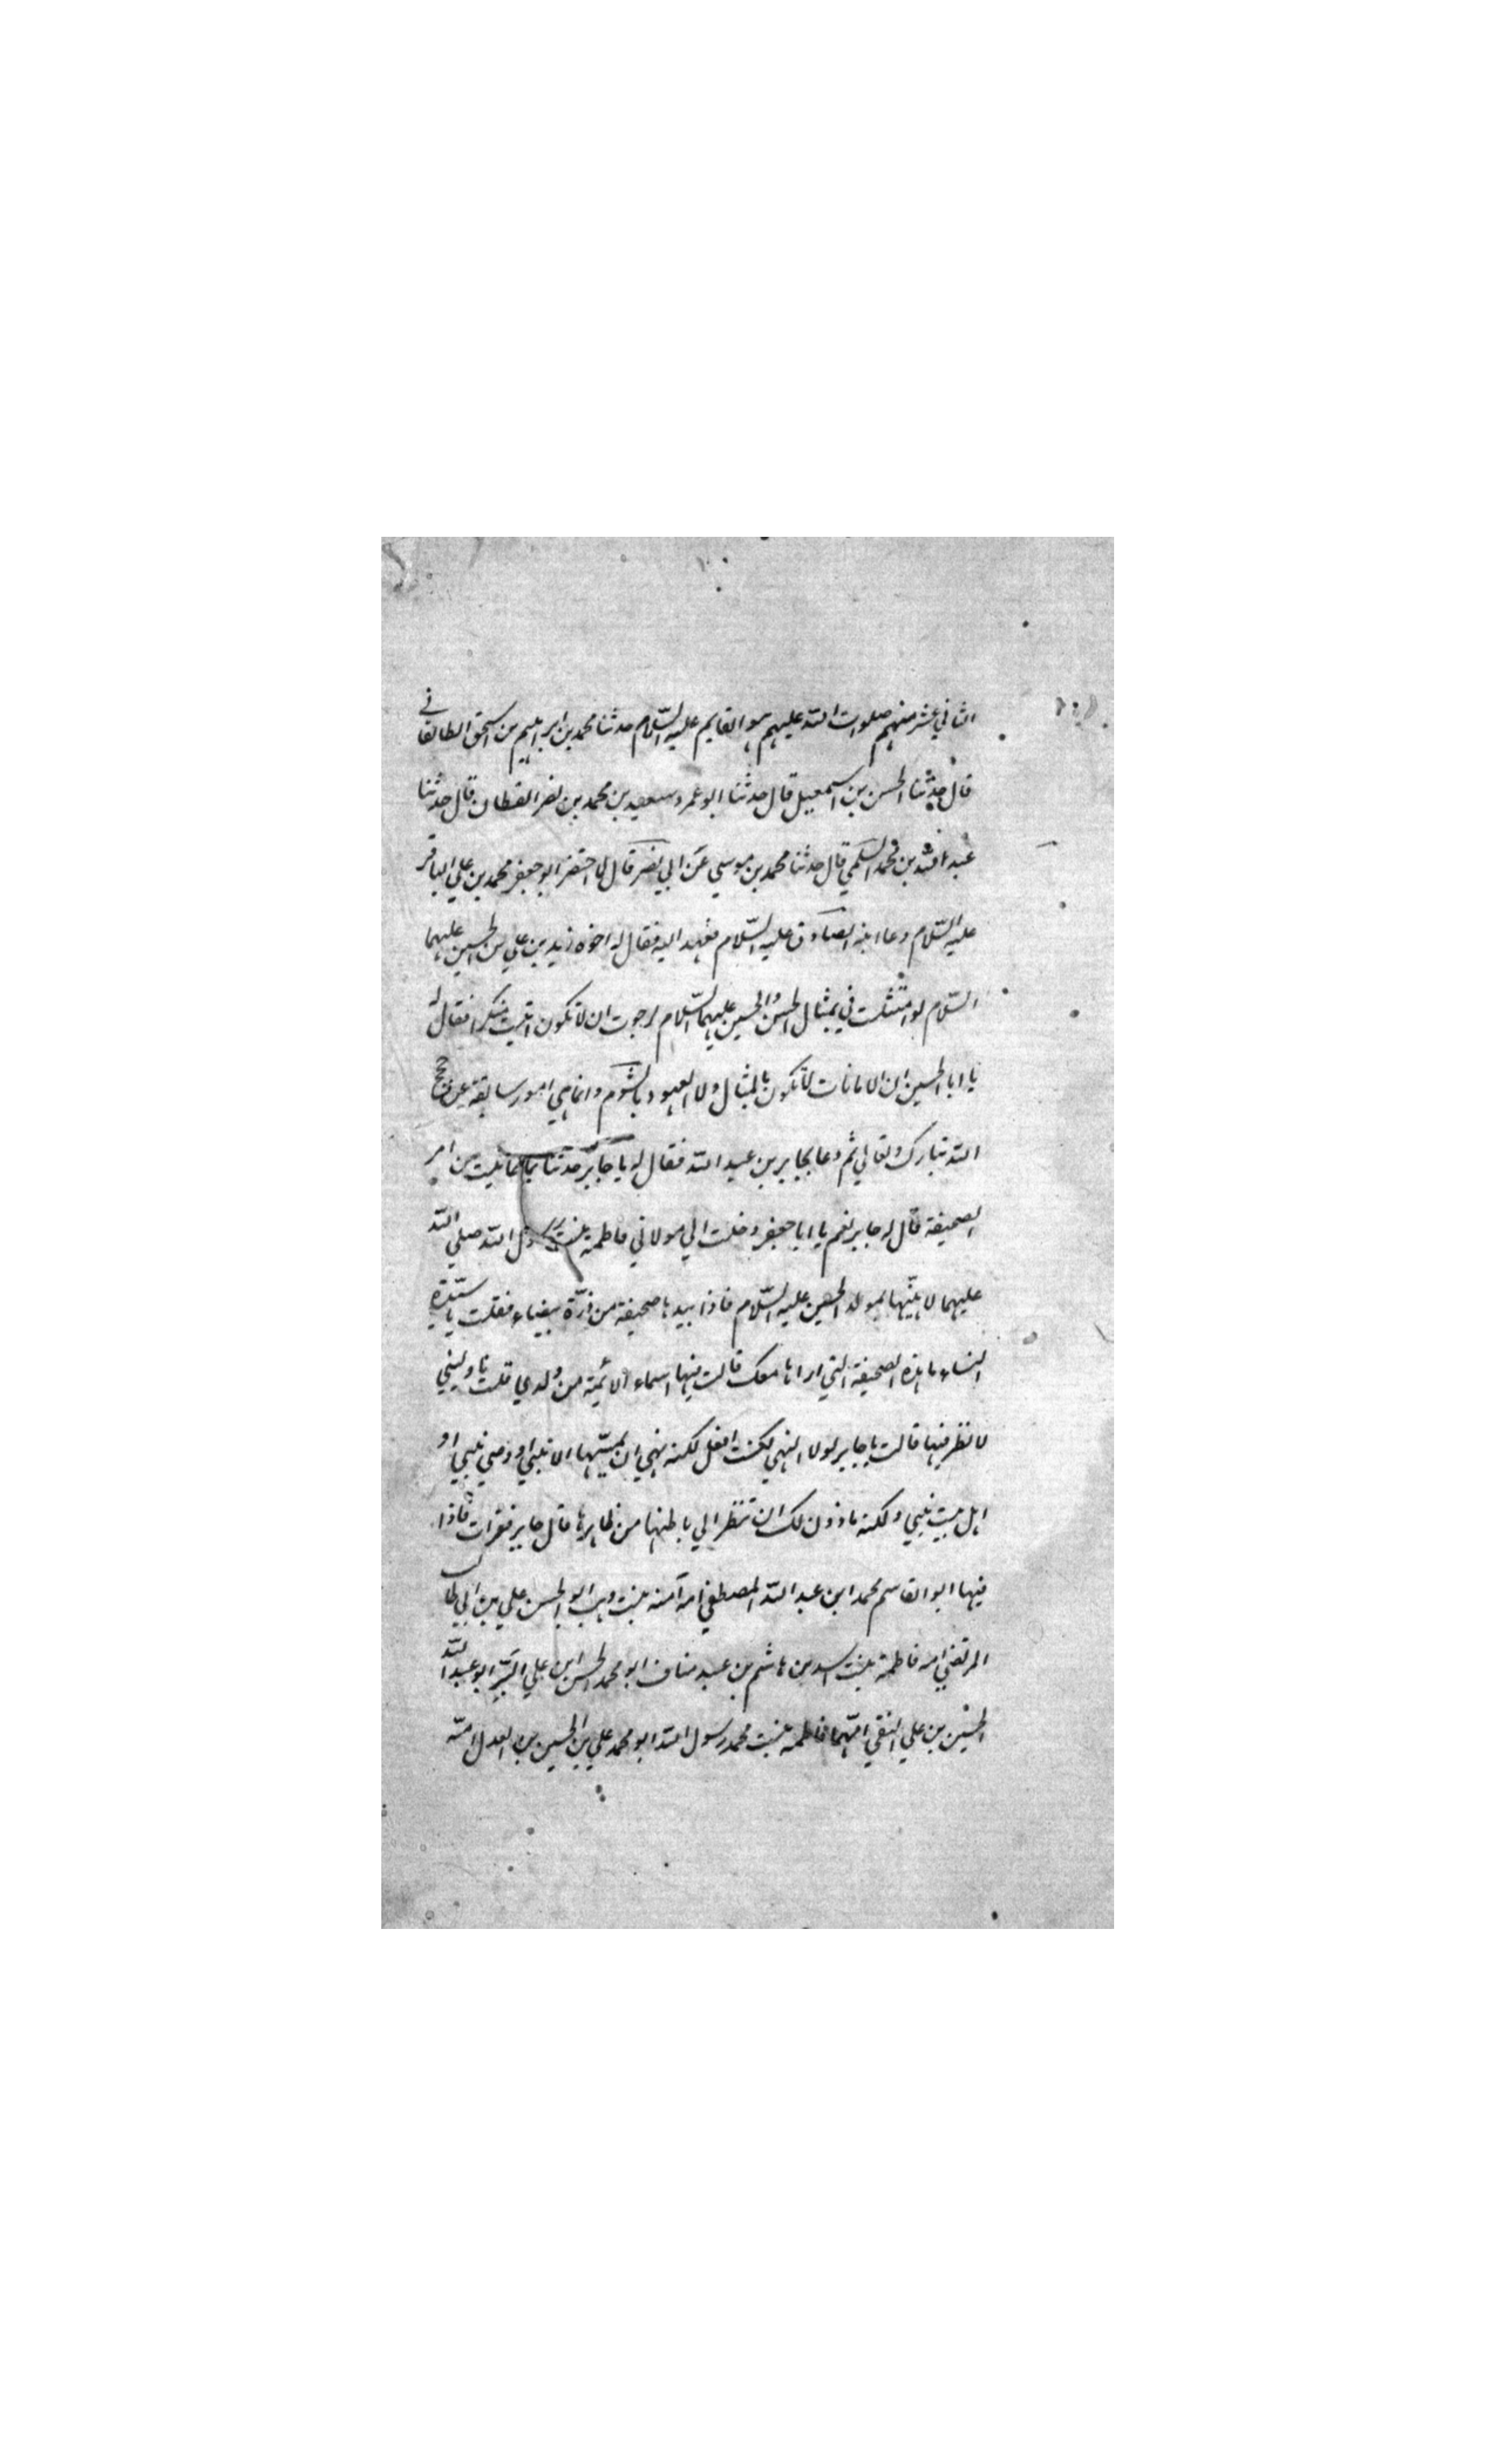 الثاني عشر منهم صلوات الله عليهم هو القايم عليه السلام حدثنا محمد بن ابراهيم بن اسحق الطالقاني
قال حدثنا الحسن بن اسمعيل قال حدثنا ابو عمرو سعيد بن محمد بن نصر القطان قال حدثنا
عبد الله بن محمد السلمي قال حدثنا محمد بن موسي عن ابي نضر قال لما احتضر ابو جعفر محمد بن علي الباقر
عليه السلام دعا ابنه الصادق عليه السلام فعهد اليه فقال له اخوه زيد بن علي بن الحسين عليهما
السلام لو امتثلت في بمثال الحسن والحسين عليهما السلام لرجوت ان لا تكون اتيت منكرا فقال له
يا ابا الحسين ان الامانات لا تكون بالمثال ولا العهود بالشوم وانما هي امور سابقة عن حجج
الله تبارك وتعالي ثم دعا بجابر بن عبد الله فقال له يا جابر حدثنا بما عاينت من امر
الصحيفة قال له جابر نعم يا ابا جعفر دخلت الي مولاتي فاطمة بنت رسول الله صلي الله
عليهما لاهنئها بمولد الحسين عليه السلام فاذا بيدها صحيفة من درة بيضاء فقلت يا سيدة
النساء ما هذه الصحيفة التي اراها معك قالت فيها اسماء الائمة من ولدي قلت ناوليني
لانظر فيها قالت يا جابر لولا النهي لكنت افعل لكنه نهي ان يمسها الا نبي او وصي نبي او
اهل بيت نبي ولكنه ماذون لك ان تنظر الي باطنها من ظاهرها قال جابر فقرات فاذا
فيها ابو القاسم محمد ابن عبد الله المصطفي امه آمنه بنت وهب ابو الحسن علي بن ابي طالب
المرتضي امه فاطمة بنت اسد بن هاشم بن عبد مناف ابو محمد الحسن ابن علي البر ابو عبد الله
الحسين بن علي التقي امهما فاطمه بنت محمد رسول الله ابو محمد علي بن الحسين العدل امه